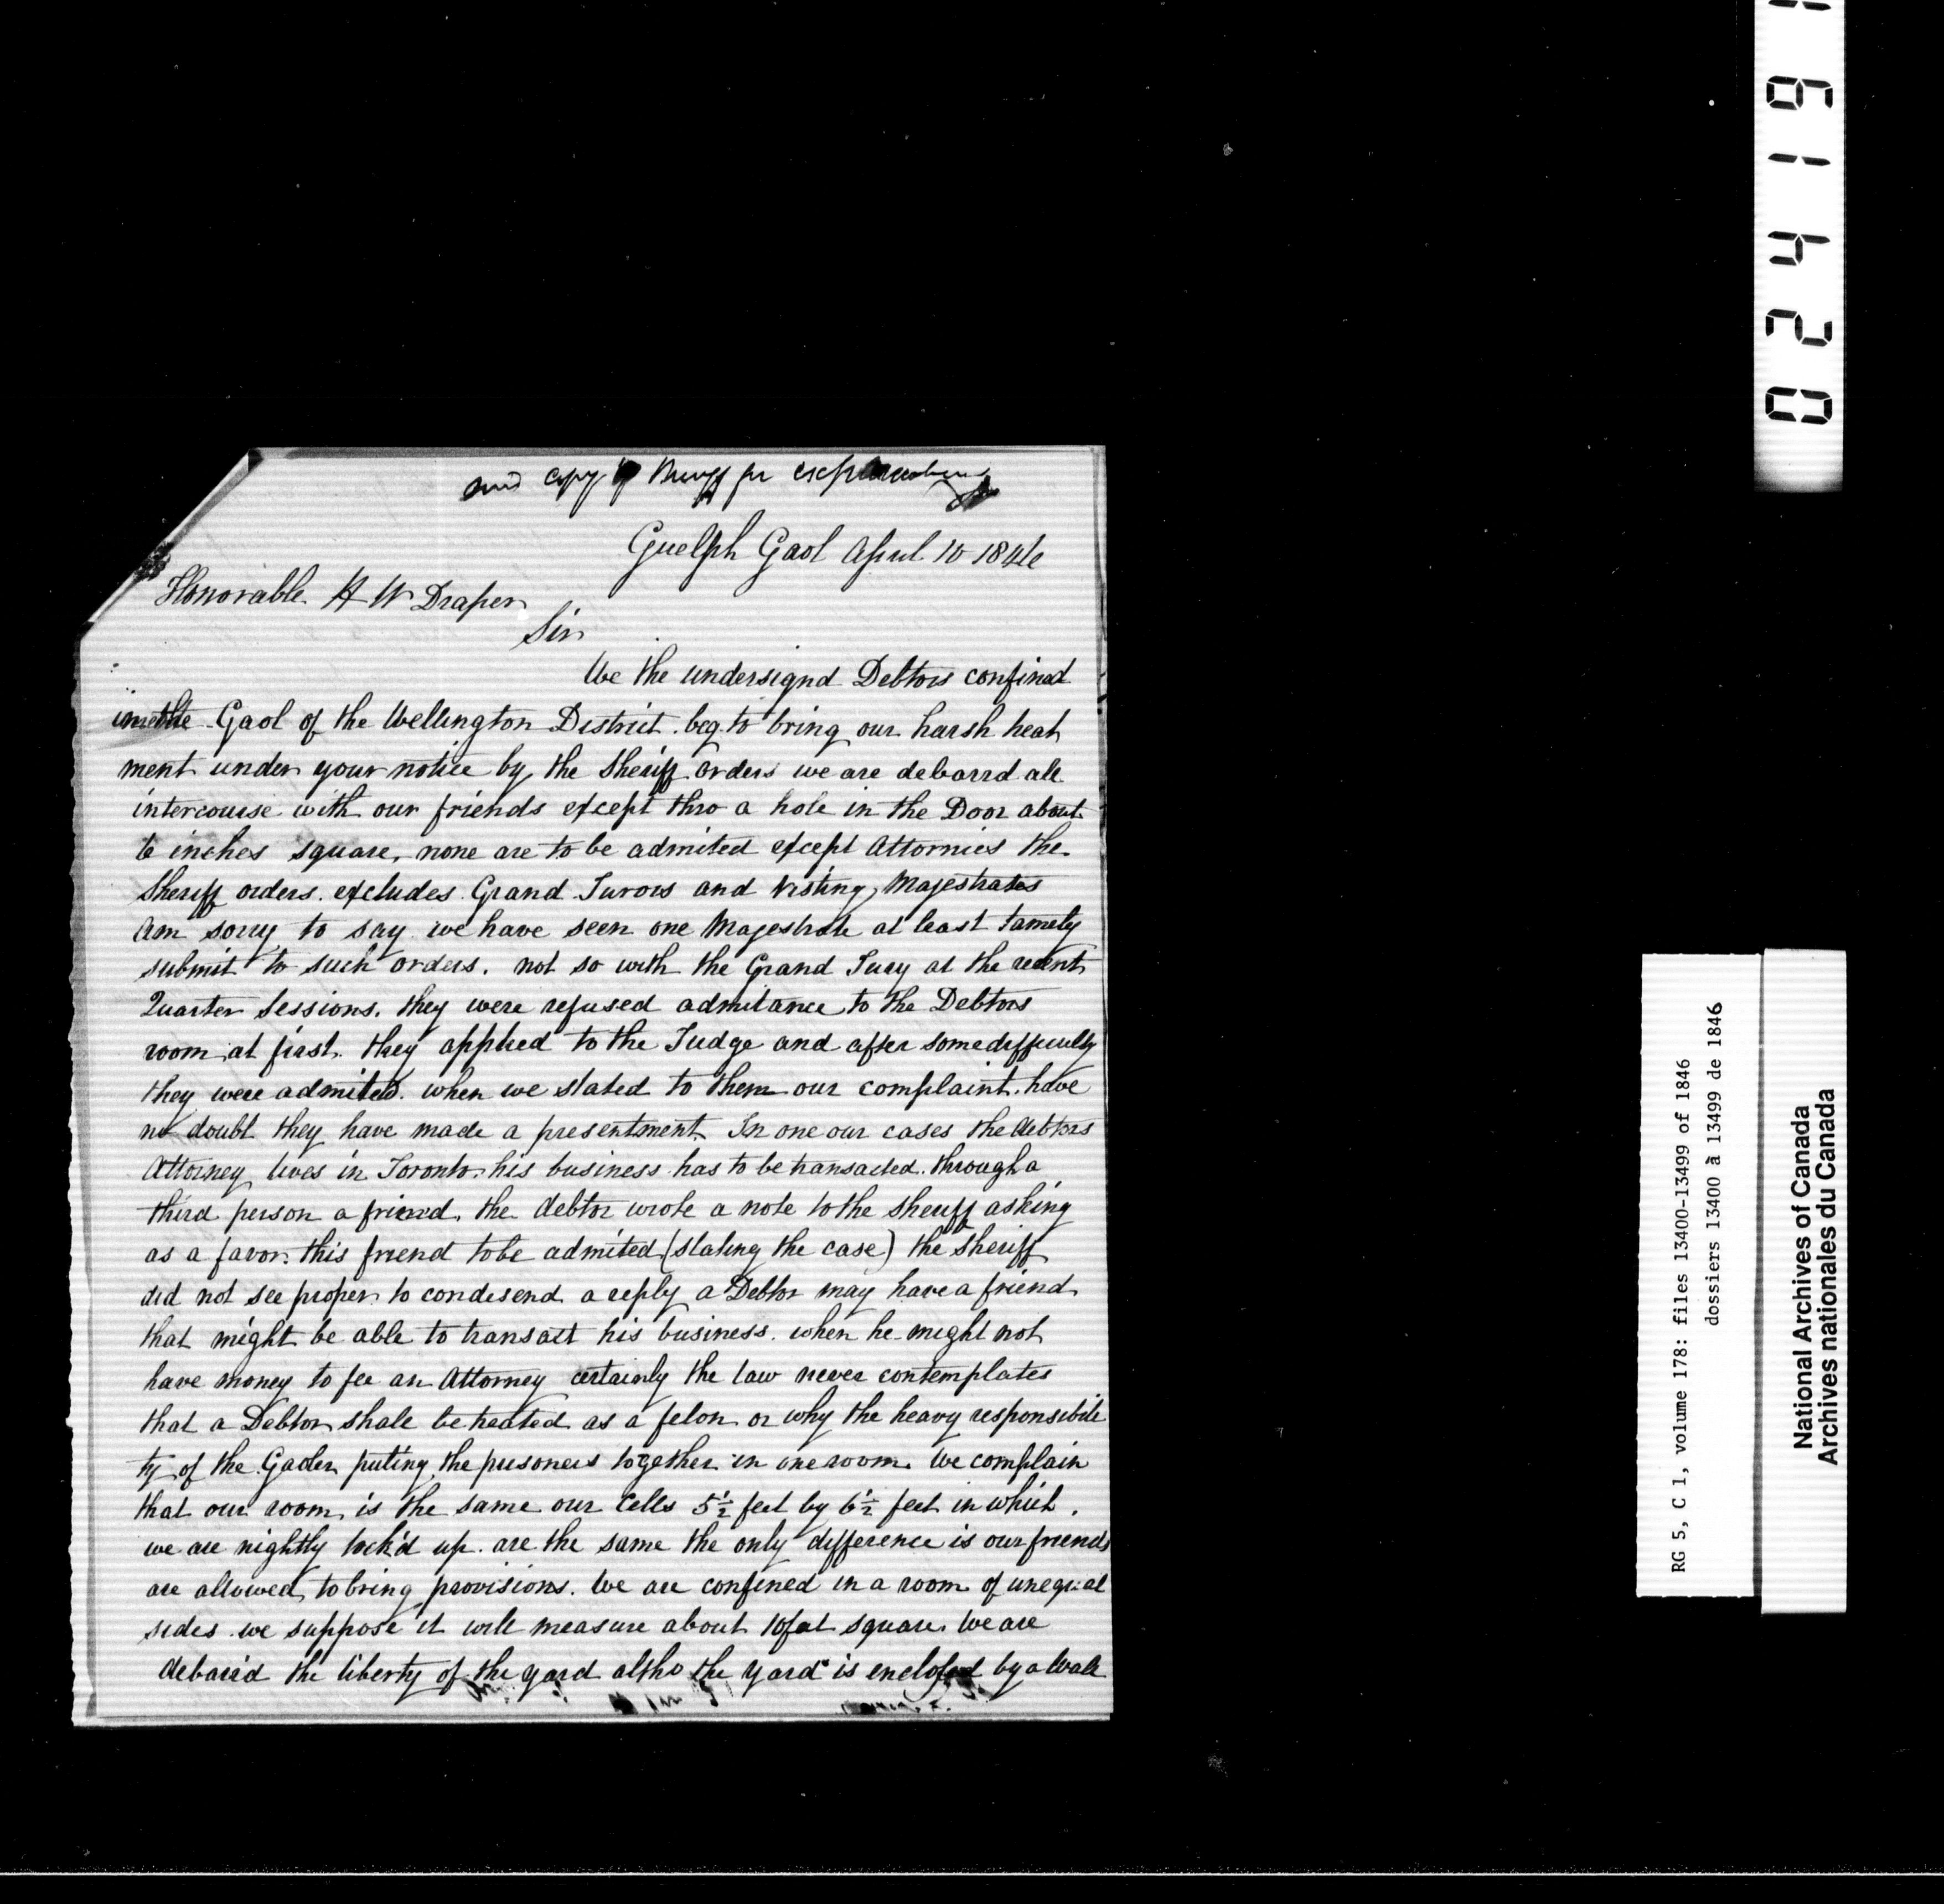 send copy to Sheriff for explanation
Guelph Gaol April 10 1846
Honorable H W Draper
Sir
We the undersignd Debtors confined
in the Gaol of the Wellington District. beg to bring our harsh treat
ment under your notice by the Sheriff orders we are debarrd all
intercourse with our friends except thro a hole in the Door about
6 inches square, none are to be admited except Attornies the
Sheriff orders. excludes Grand Jurors and Visting Majestrates
Am sorry to say we have seen one Majestrate at least tamely
submit to such orders. not so with the Grand Jury at the recent
Quarter Sessions. they were refused admitance to the Debtors
room at first. they applied to the Judge and after some difficulty
they were admited. when we stated to them our complaint. have
no doubt they have made a presentment. In one our cases the debtors
Attorney lives in Toronto. his business has to be transacted. through a
third person a friend. the debtor wrote a note to the sheriff asking
as a favor. this friend to be admited (stating the case) the sheriff
did not see proper to condesend a reply a Debtor may have a friend
that might be able to transact his business. when he might not
have money to fee an Attorney certainly the law never contemplates
that a Debtor shall be treated as a felon or why the heavy responsibili
ty of the Gaoler puting the prisoners together in one room. We complain
that our room is the same our Cells 5½ feet by 6½ feet in which.
we are nightly lock'd up. are the same the only difference is our friends
are allowed to bring provisions. We are confined in a room of unequal
sides we suppose it will measure about 10 feet square. We are
debarr'd the liberty of the yard altho the yard is enclosed by a Wall
02419
RG 5, C 1, volume 178: files 13400-13499 of 1846
dossiers 13400 à 13499 de 1846
National Archives of Canada
Archives nationales du Canada